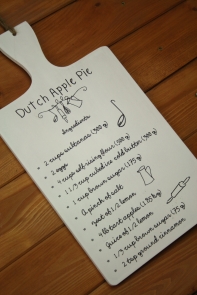 Dutch Apple Pie
Ingredients
2 cups sultanas (300 g)
2 eggs
4 cups self-rising flour (500 g)
1 1/3 cup cubed ice cold butter (300 g)
1 cup brown sugar (175 g)
A pinch of salt
Zest of 1/2 lemon
4 lb tart apples
Juice of 1/2 lemon
1/3 cup brown sugar (75 g)
2 tbsp ground cinnamon